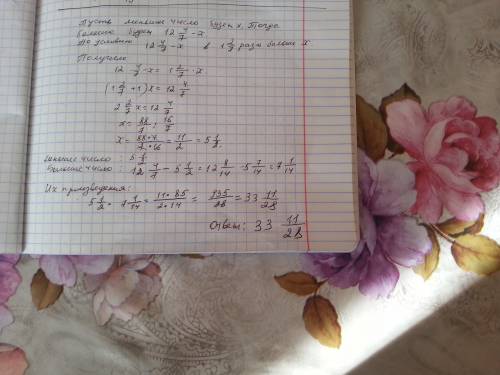 Пусть меньшее число будет x. Тогда
большее будет 12 4/7 - x
По условию 12 4/7 - x в 1 2/7 раза больше x
Получаем
12 4/7 - x = 1 2/7 · x
(1 2/7 + 1) x = 12 4/7
2 2/7 x = 12 4/7
x = 88/7 : 16/7
x = 88·7/7·16 = 11/2 = 5 1/2
меньшее число : 5 1/2
Большее число : 12 4/7 - 5 1/2 = 12 8/14 - 5 7/14 = 7 1/14
Их произведения:
5 1/2 · 7 1/14 = 11·85/2·14 = 935/28 = 33 11/28
Ответ: 33 11/28